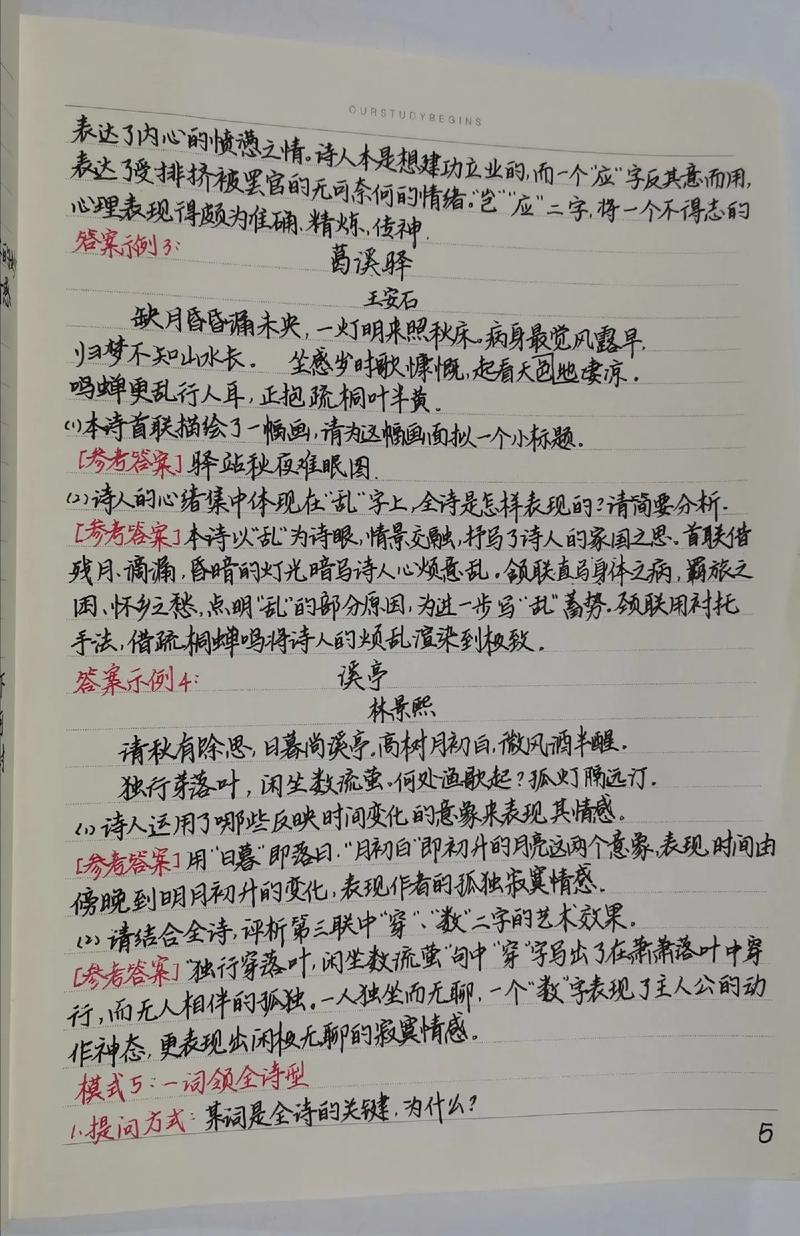 OURSTUDYBEGINS
表达了内心的愤懑之情。诗人本是想建功立业的,而一个“应”字反其意而用,
表达了受排挤被罢官的无可奈何的情绪。“岂”“应”二字,将一个不得志的
心理表现得颇为准确、精炼、传神.
答案示例3:
葛溪驿
王安石
缺月昏昏漏未央,一灯明来照秋床。病身最觉风露早,
归梦不知山水长。 坐感岁时歌慷慨,起看天色地凄凉.
鸣蝉更乱行人耳,正抱疏桐叶半黄。
(1)本诗首联描绘了一幅画,请为这幅画面拟一个小标题。
[参考答案]驿站秋夜难眠图.
(2)诗人的心绪集中体现在“乱”字上,全诗是怎样表现的?请简要分析.
[参考答案]本诗以“乱”为诗眼,情景交融,抒写了诗人的家国之思。首联借
残月、滴漏,昏暗的灯光暗写诗人心烦意乱。颔联直写身体之病,羁旅之
困、怀乡之愁,点明“乱”的部分原因,为进一步写“乱”蓄势。颈联用衬托
手法,借疏桐蝉鸣将诗人的烦乱渲染到极致。
答案示例4:
溪亭
林景熙
清秋有馀思,日暮尚溪亭.高树月初白,微风酒半醒.
独行芽落叶,闲坐数流萤.何处渔歌起?孤灯隔远汀.
(1)诗人运用了哪些反映时间变化的意象来表现其情感。
[参考答案]用“日暮”即落日.“月初白”即初升的月亮这两个意象,表现时间由
傍晚到明月初升的变化,表现作者的孤独寂寞情感.
(2)请结合全诗,评析第三联中“穿”、“数”二字的艺术效果.
[参考答案]“独行穿落叶,闲坐数流萤”句中“穿”字写出了在萧萧落叶中穿
行,而无人相伴的孤独。一人独坐而无聊,一个“数”字表现了主人公的动
作神态,更表现出闲极无聊的寂寞情感。
模式5:一词领全诗型
1.提问方式:某词是全诗的关键,为什么?
5